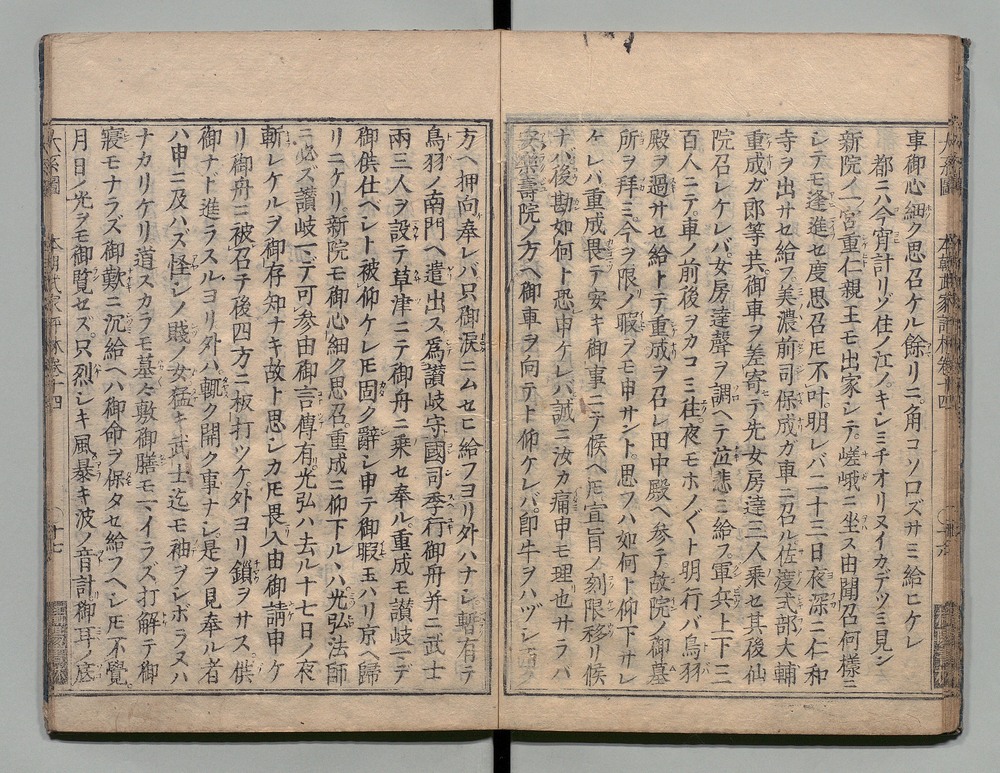 事御心細ク思召ケル餘リニ角コソロズサミ給ヒケレ
都ニハ今宵計リゾ住ノ江ノキシミチオリヌイカデツミ見シ
新院ノ一宮重仁親王モ出家シテ嵯峨ニ坐ス由聞召何樣ニ
シテモ逢進セ度思召𪜈不叶明レバ二十三日夜深ニ仁和
寺ヲ出サセ給フ美濃前司保成ガ車ニ召ル佐渡式部大輔
重成ガ郎等共御車ヲ差寄テ先女房達三人乗セ其後仙
院召レケレバ女房達聲ヲ調ヘテ泣悲ミ給フ軍兵上下三
百人ニテ車ノ前後ヲカコミ往夜モホノ〲ト明行バ鳥羽
殿ヲ過サセ給トテ重成ヲ召レ田中殿ヘ参テ故院ノ御墓
所ヲ拜ミ今ヲ限ノ暇ヲモ申サント思フハ如何ト仰下サレ
ケレバ重成畏テ安キ御事ニテ候ヘ𪜈宣旨ノ刻限移リ候
ナバ後勘如何ト恐申ケレバ誠ニ汝カ痛申モ理也サラバ
安樂壽院ノ方ヘ御車ヲ向テト仰ケレバ即牛ヲハヅシ
方ヘ押向奉レバ只御涙ニムセヒ給フヨリ外ハナシ暫有テ
鳥羽ノ南門ヘ遣出ス爲讃岐守國司季行御舟并ニ武士
兩三人ヲ設テ草津ニテ御舟ニ乗セ奉ル重成モ讃岐マデ
御供仕ヘシト被仰ケレ𪜈固ク辭シ申テ御暇玉ハリ京ヘ歸
リニケリ新院モ御心細ク思召重成ニ仰下ルヽハ光弘法師
ニ必ス讃岐マデ可参由御言傳有光弘ハ去ル十七日ノ夜
斬レケルヲ御存知ナキ故ト思シカ𪜈畏入由御請申ケ
リ御舟ニ被召テ後四方ニ板打ツケ外ヨリ鎖ヲサス供
御ナド進ラスルヨリ外ハ輙ク開ク事ナシ是ヲ見奉ル者
ハ申ニ及ハズ怪シノ賤ノ女猛キ武士迄モ袖ヲシボラヌハ
ナカリケリ道スカラモ墓々敷御膳モマイラズ打解テ御
寢モナラズ御歎ニ沉給ヘハ御命ヲ保タセ給フヘシ𪜈不覺
月日ノ光ヲモ御覧セズ只烈シキ風暴キ波ノ音計御耳ノ底
本朝武家評林卷十四
十七